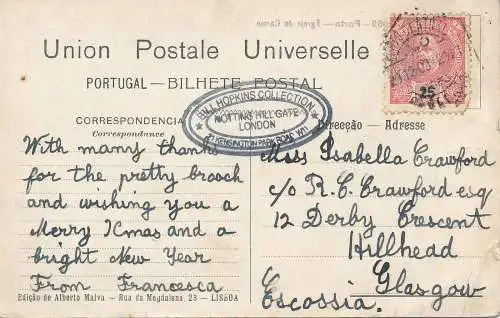 Union Postale Universelle
PORTUGAL — BILHETE POSTAL
25
BILL HOPKINS COLLECTION
NOTTING HILL GATE
LONDON
KENSINGTON PARK ROAD W11
CORRESPONDENCIA
Correspondance
Direcção - Adresse
With many thanks
for the pretty brooch
and wishing you a
Merry Xmas and a
bright New Year
From Francesca
Miss Isabella Crawford
c/o R. C. Crawford esq
12 Derby Crescent
Hillhead
Glasgow
Escossia.
Edição de Alberto Malva - Rua da Magdalena, 23 - LISBOA